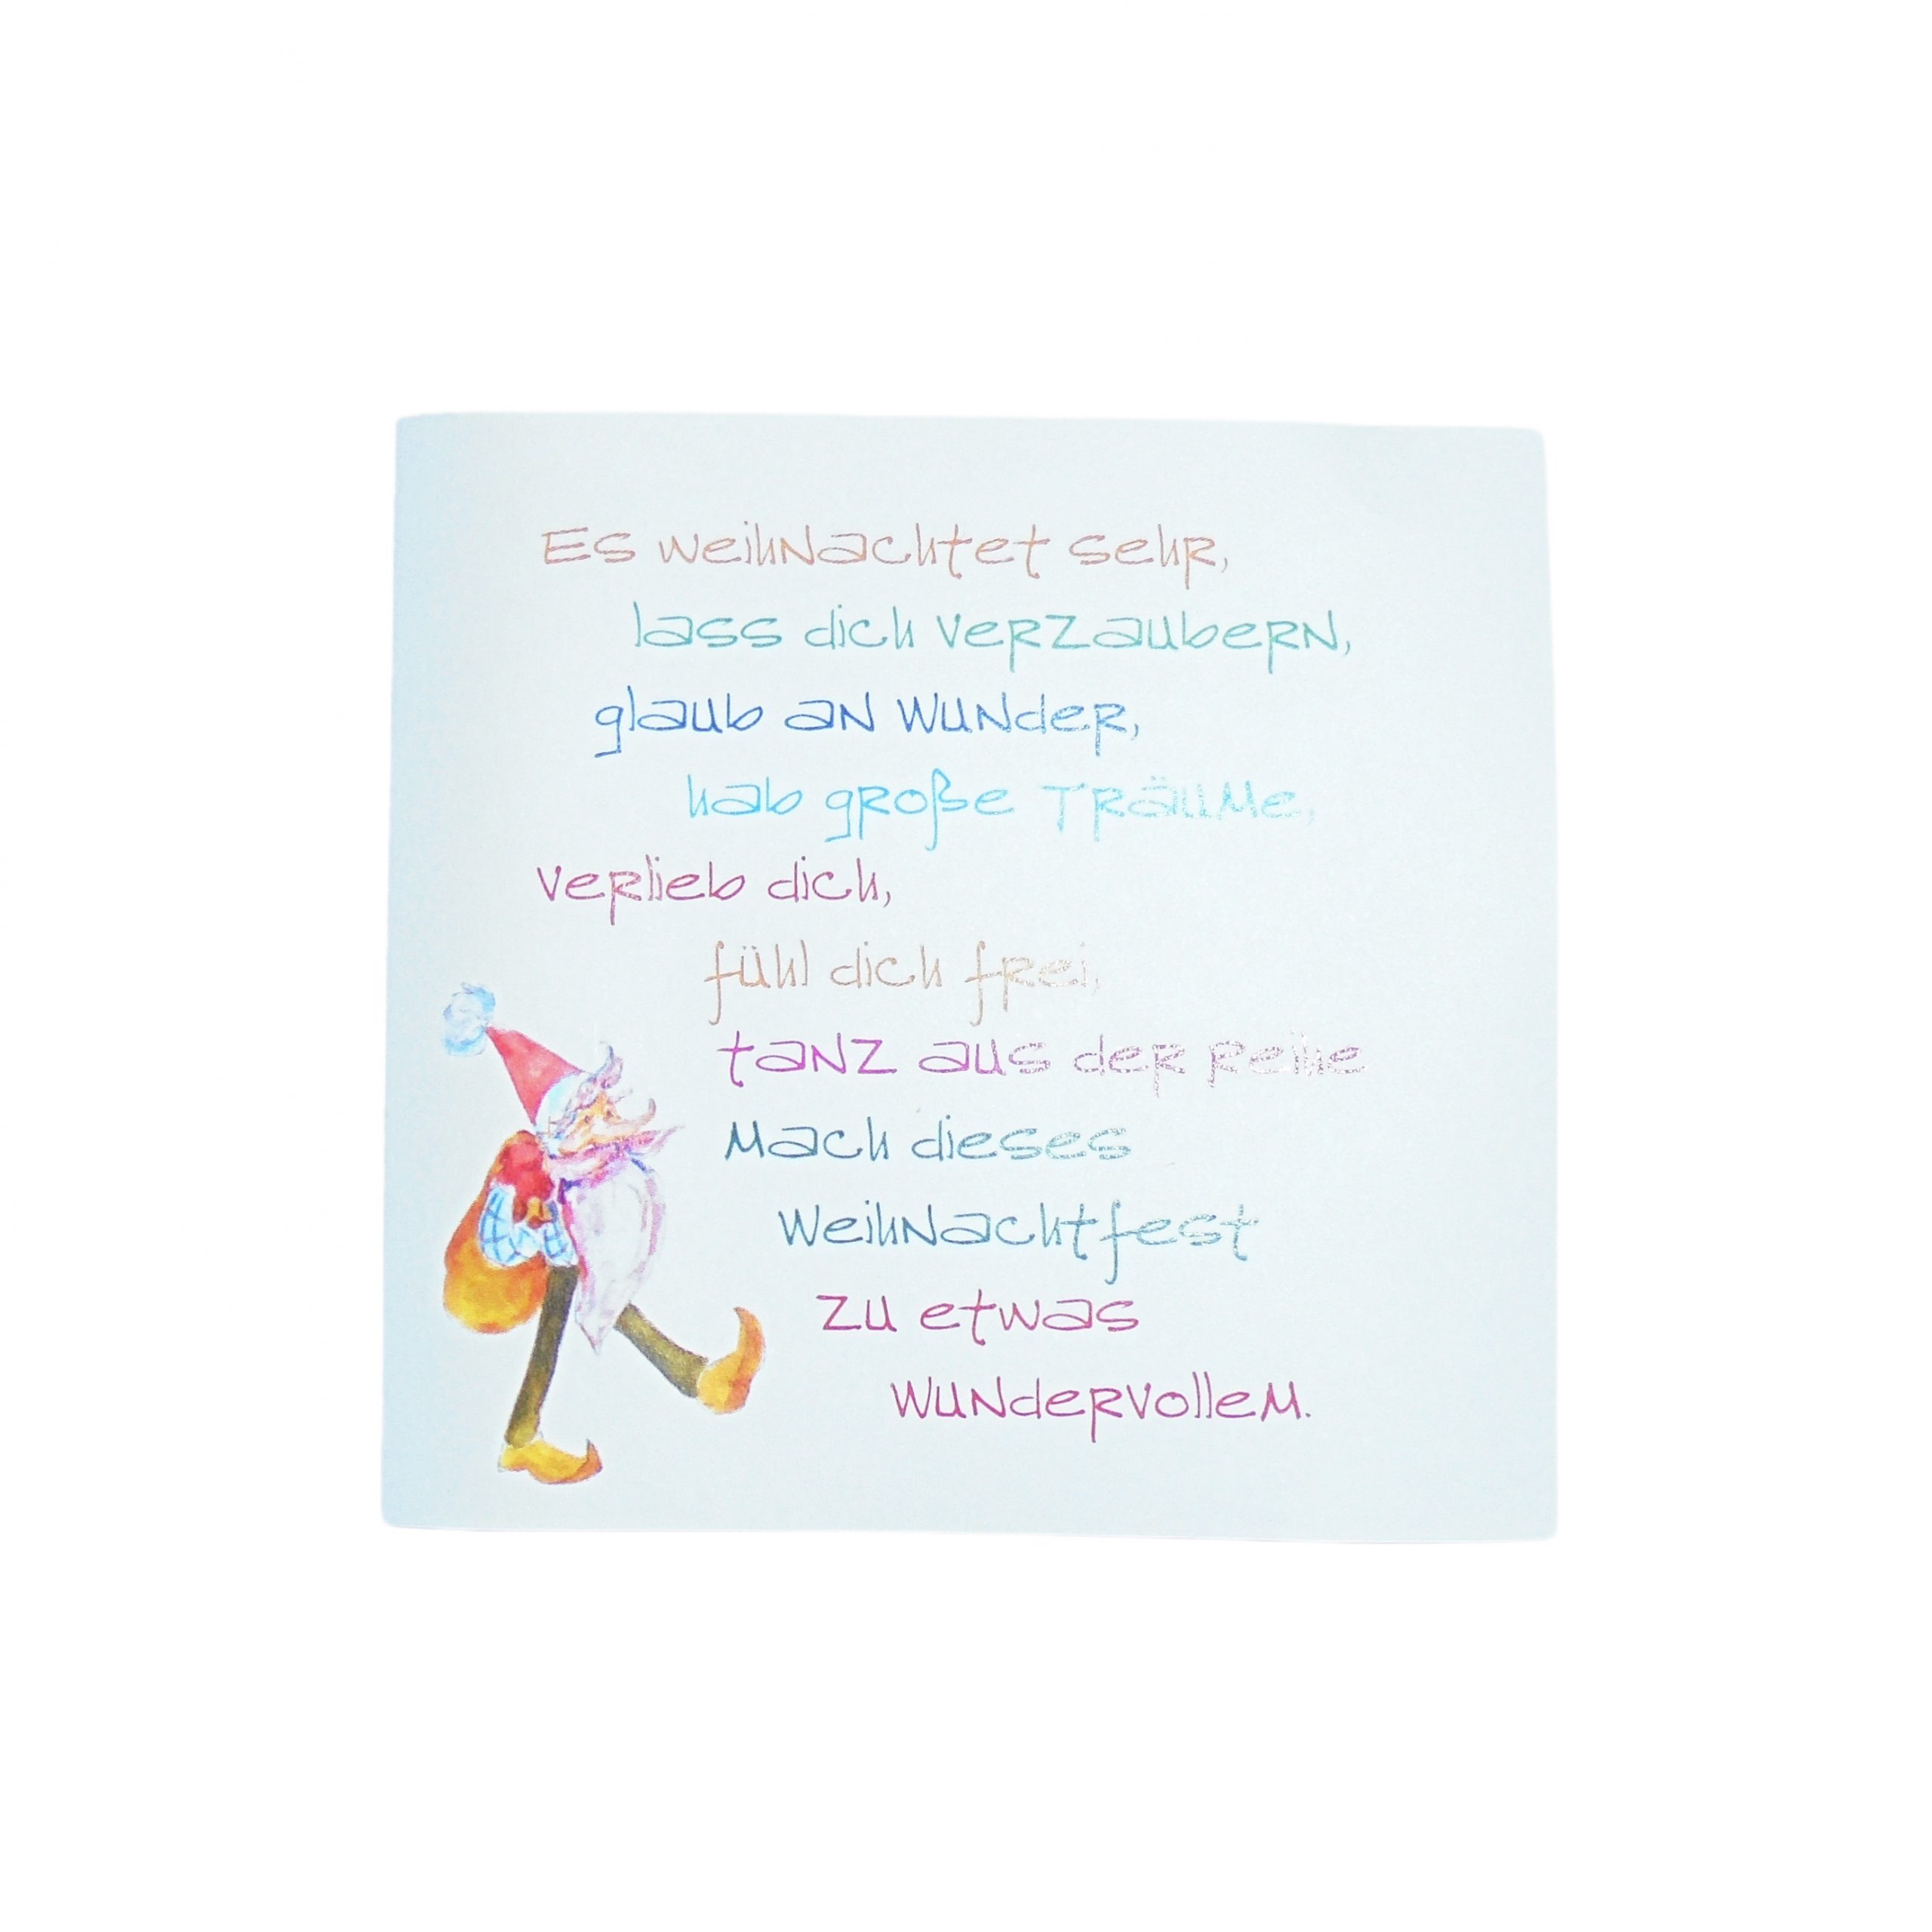 Es weihnachtet sehr,
lass dich verzaubern,
glaub an Wunder,
hab große Träume,
verlieb dich,
fühl dich frei,
tanz aus der Reihe
Mach dieses
Weihnachtfest
zu etwas
Wundervollem.